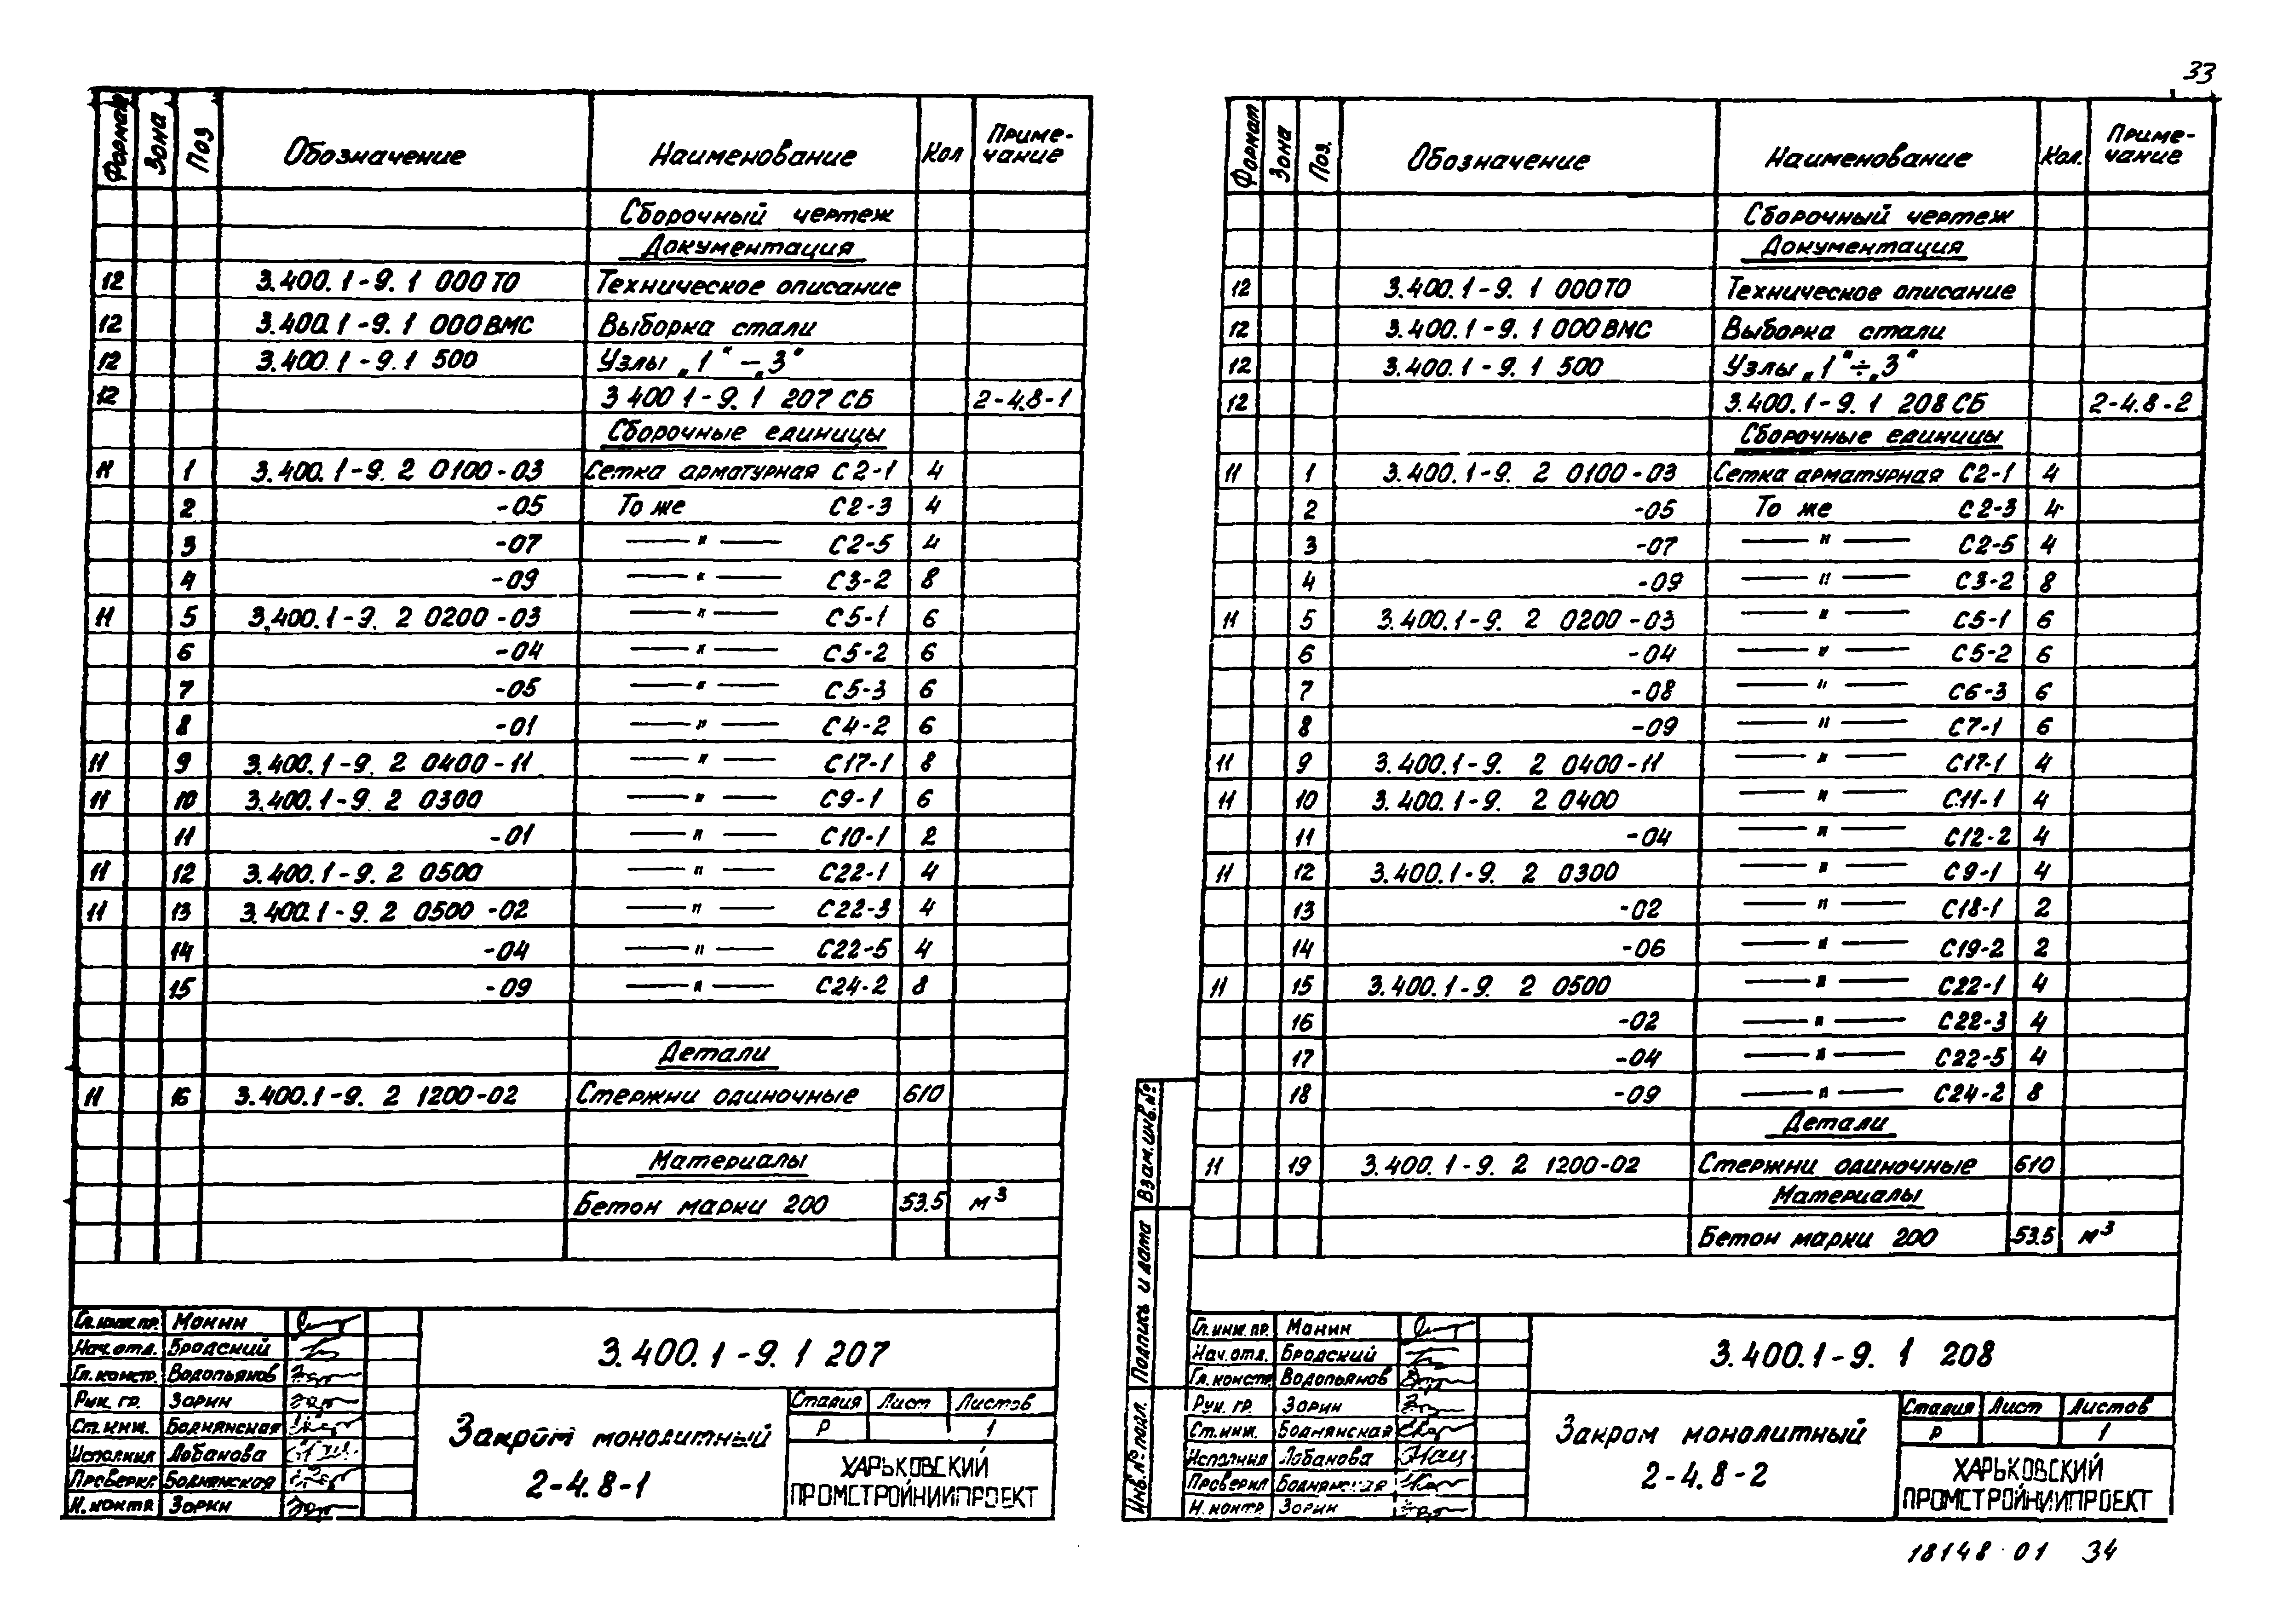 33
Формат Зона Поз Обозначение Наименование Кол Приме-
чание
Сборочный чертеж
Документация
12 3.400.1-9.1 000ТО Техническое описание
12 3.400.1-9.1 000ВМС Выборка стали
12 3.400.1-9.1 500 Узлы „1“ – „3“
12 3 400 1-9.1 207 СБ 2-4.8-1
Сборочные единицы
11 1 3.400.1-9. 2 0100-03 Сетка арматурная С2-1 4
2 -05 То же С2-3 4
3 -07 — " — С2-5 4
4 -09 — " — С3-2 8
11 5 3.400.1-9. 2 0200-03 — " — С5-1 6
6 -04 — " — С5-2 6
7 -05 — " — С5-3 6
8 -01 — " — С4-2 6
11 9 3.400.1-9. 2 0400-11 — " — С17-1 8
11 10 3.400.1-9. 2 0300 — " — С9-1 6
11 -01 — " — С10-1 2
11 12 3.400.1-9. 2 0500 — " — С22-1 4
11 13 3.400.1-9. 2 0500-02 — " — С22-3 4
14 -04 — " — С22-5 4
15 -09 — " — С24-2 8
Детали
11 16 3.400.1-9. 2 1200-02 Стержни одиночные 610
Материалы
Бетон марки 200 53.5 м³
Гл. инж. пр. Монин
Нач. отд. Бродский
Гл. констр. Водопьянов
Рук. гр. Зорин
Ст. инж. Боднянская
Исполнил Лобанова
Проверил Боднянская
Н. контр Зорин
3.400.1-9. 1 207
Закром монолитный
2-4.8-1
Стадия Лист Листов
Р 1
ХАРЬКОВСКИЙ
ПРОМСТРОЙНИИПРОЕКТ
Формат Зона Поз. Обозначение Наименование Кол. Приме-
чание
Сборочный чертеж
Документация
12 3.400.1-9. 1 000ТО Техническое описание
12 3.400.1-9. 1 000ВМС Выборка стали
12 3.400.1-9. 1 500 Узлы „1“ ÷ „3“
12 3.400.1-9. 1 208 СБ 2-4.8-2
Сборочные единицы
11 1 3.400.1-9. 2 0100-03 Сетка арматурная С2-1 4
2 -05 То же С2-3 4
3 -07 — " — С2-5 4
4 -09 — " — С3-2 8
11 5 3.400.1-9. 2 0200-03 — " — С5-1 6
6 -04 — " — С5-2 6
7 -08 — " — С6-3 6
8 -09 — " — С7-1 6
11 9 3.400.1-9. 2 0400-11 — " — С17-1 4
11 10 3.400.1-9. 2 0400 — " — С11-1 4
11 -04 — " — С12-2 4
11 12 3.400.1-9. 2 0300 — " — С9-1 4
13 -02 — " — С18-1 2
14 -06 — " — С19-2 2
11 15 3.400.1-9. 2 0500 — " — С22-1 4
16 -02 — " — С22-3 4
17 -04 — " — С22-5 4
18 -09 — " — С24-2 8
Детали
11 19 3.400.1-9. 2 1200-02 Стержни одиночные 610
Материалы
Бетон марки 200 53.5 м³
Взам. инв. №
Подпись и дата
Инв. № подл.
Гл. инж. пр. Монин
Нач. отд. Бродский
Гл. констр Водопьянов
Рук. гр. Зорин
Ст. инж. Боднянская
Исполнил Лобанова
Проверил Боднянская
Н. контр. Зорин
3.400.1-9. 1 208
Закром монолитный
2-4.8-2
Стадия Лист Листов
Р 1
ХАРЬКОВСКИЙ
ПРОМСТРОЙНИИПРОЕКТ
18148 01 34